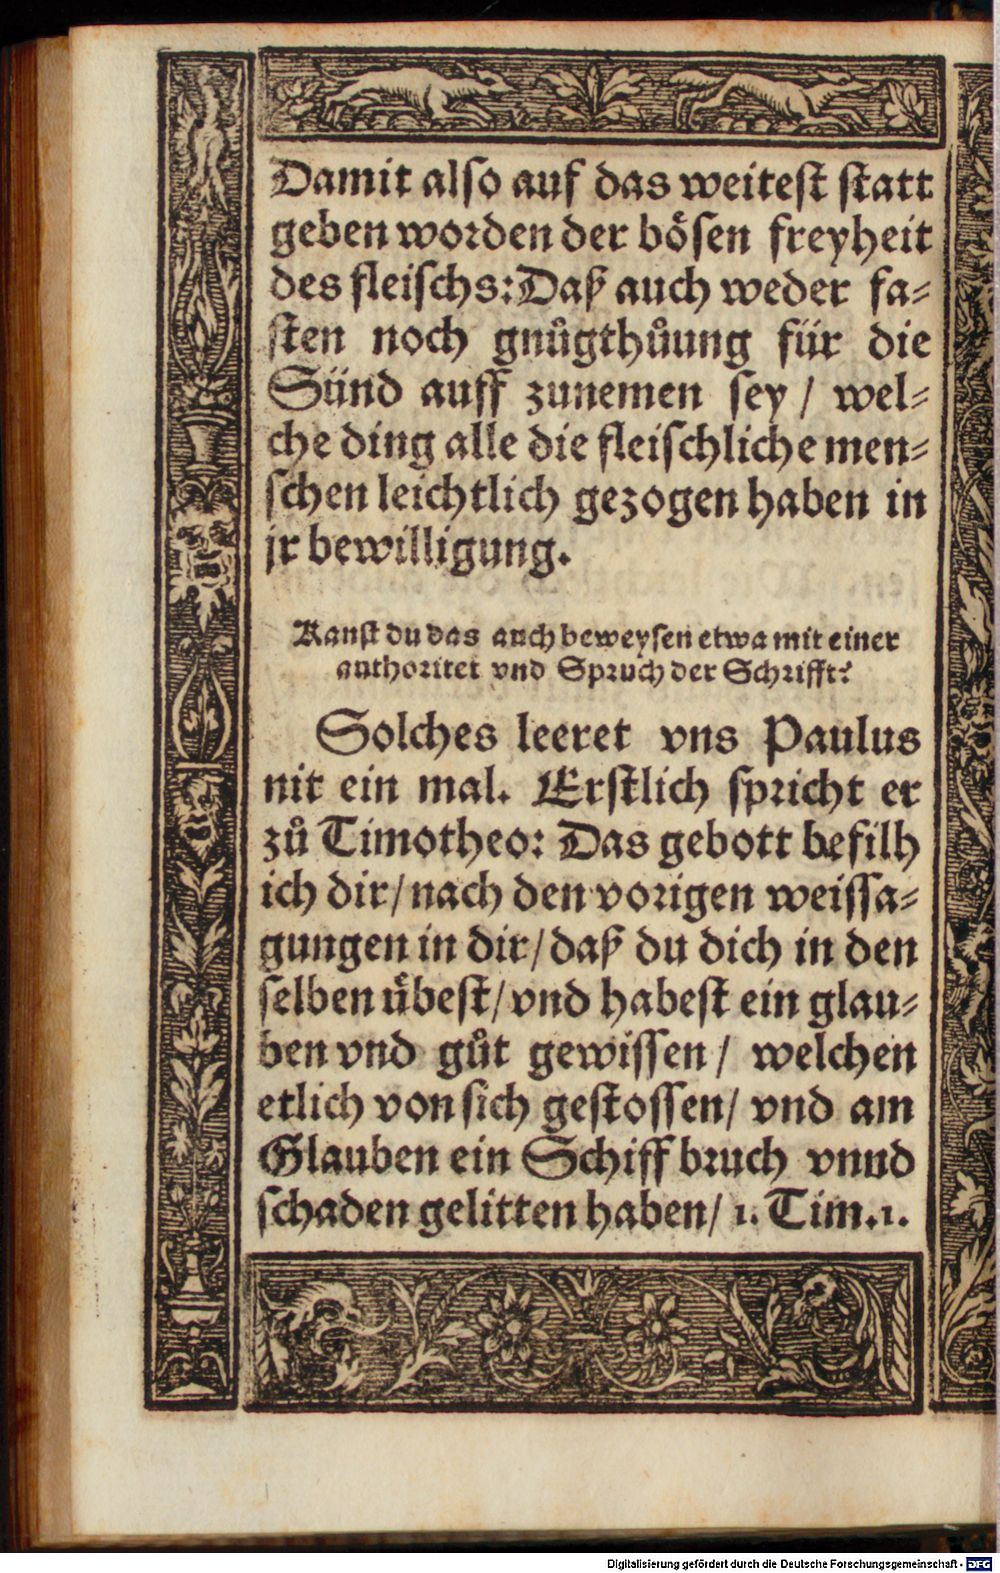 Damit also auf das weitest statt
geben worden der bösen freyheit
des fleischs: Daß auch weder fa-
sten noch gnůgthůung für die
Sünd auff zunemen sey / wel-
che ding alle die fleischliche men-
schen leichtlich gezogen haben in
jr bewilligung.
Kanst du das auch beweysen etwa mit einer
authoritet vnd Spruch der Schrifft?
Solches leeret vns Paulus
nit ein mal. Erstlich spricht er
zů Timotheo: Das gebott befilh
ich dir / nach den vorigen weissa-
gungen in dir / daß du dich in den
selben übest / vnd habest ein glau-
ben vnd gůt gewissen / welchen
etlich von sich gestossen / vnd am
Glauben ein Schiffbruch vnnd
schaden gelitten haben / 1. Tim. 1.
Digitalisierung gefördert durch die Deutsche Forschungsgemeinschaft - DFG